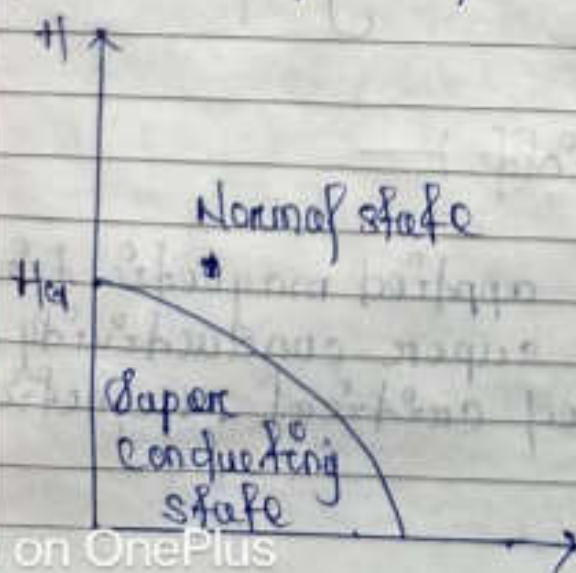 H
Normal state
Hc1
Super
conducting
state
on OnePlus